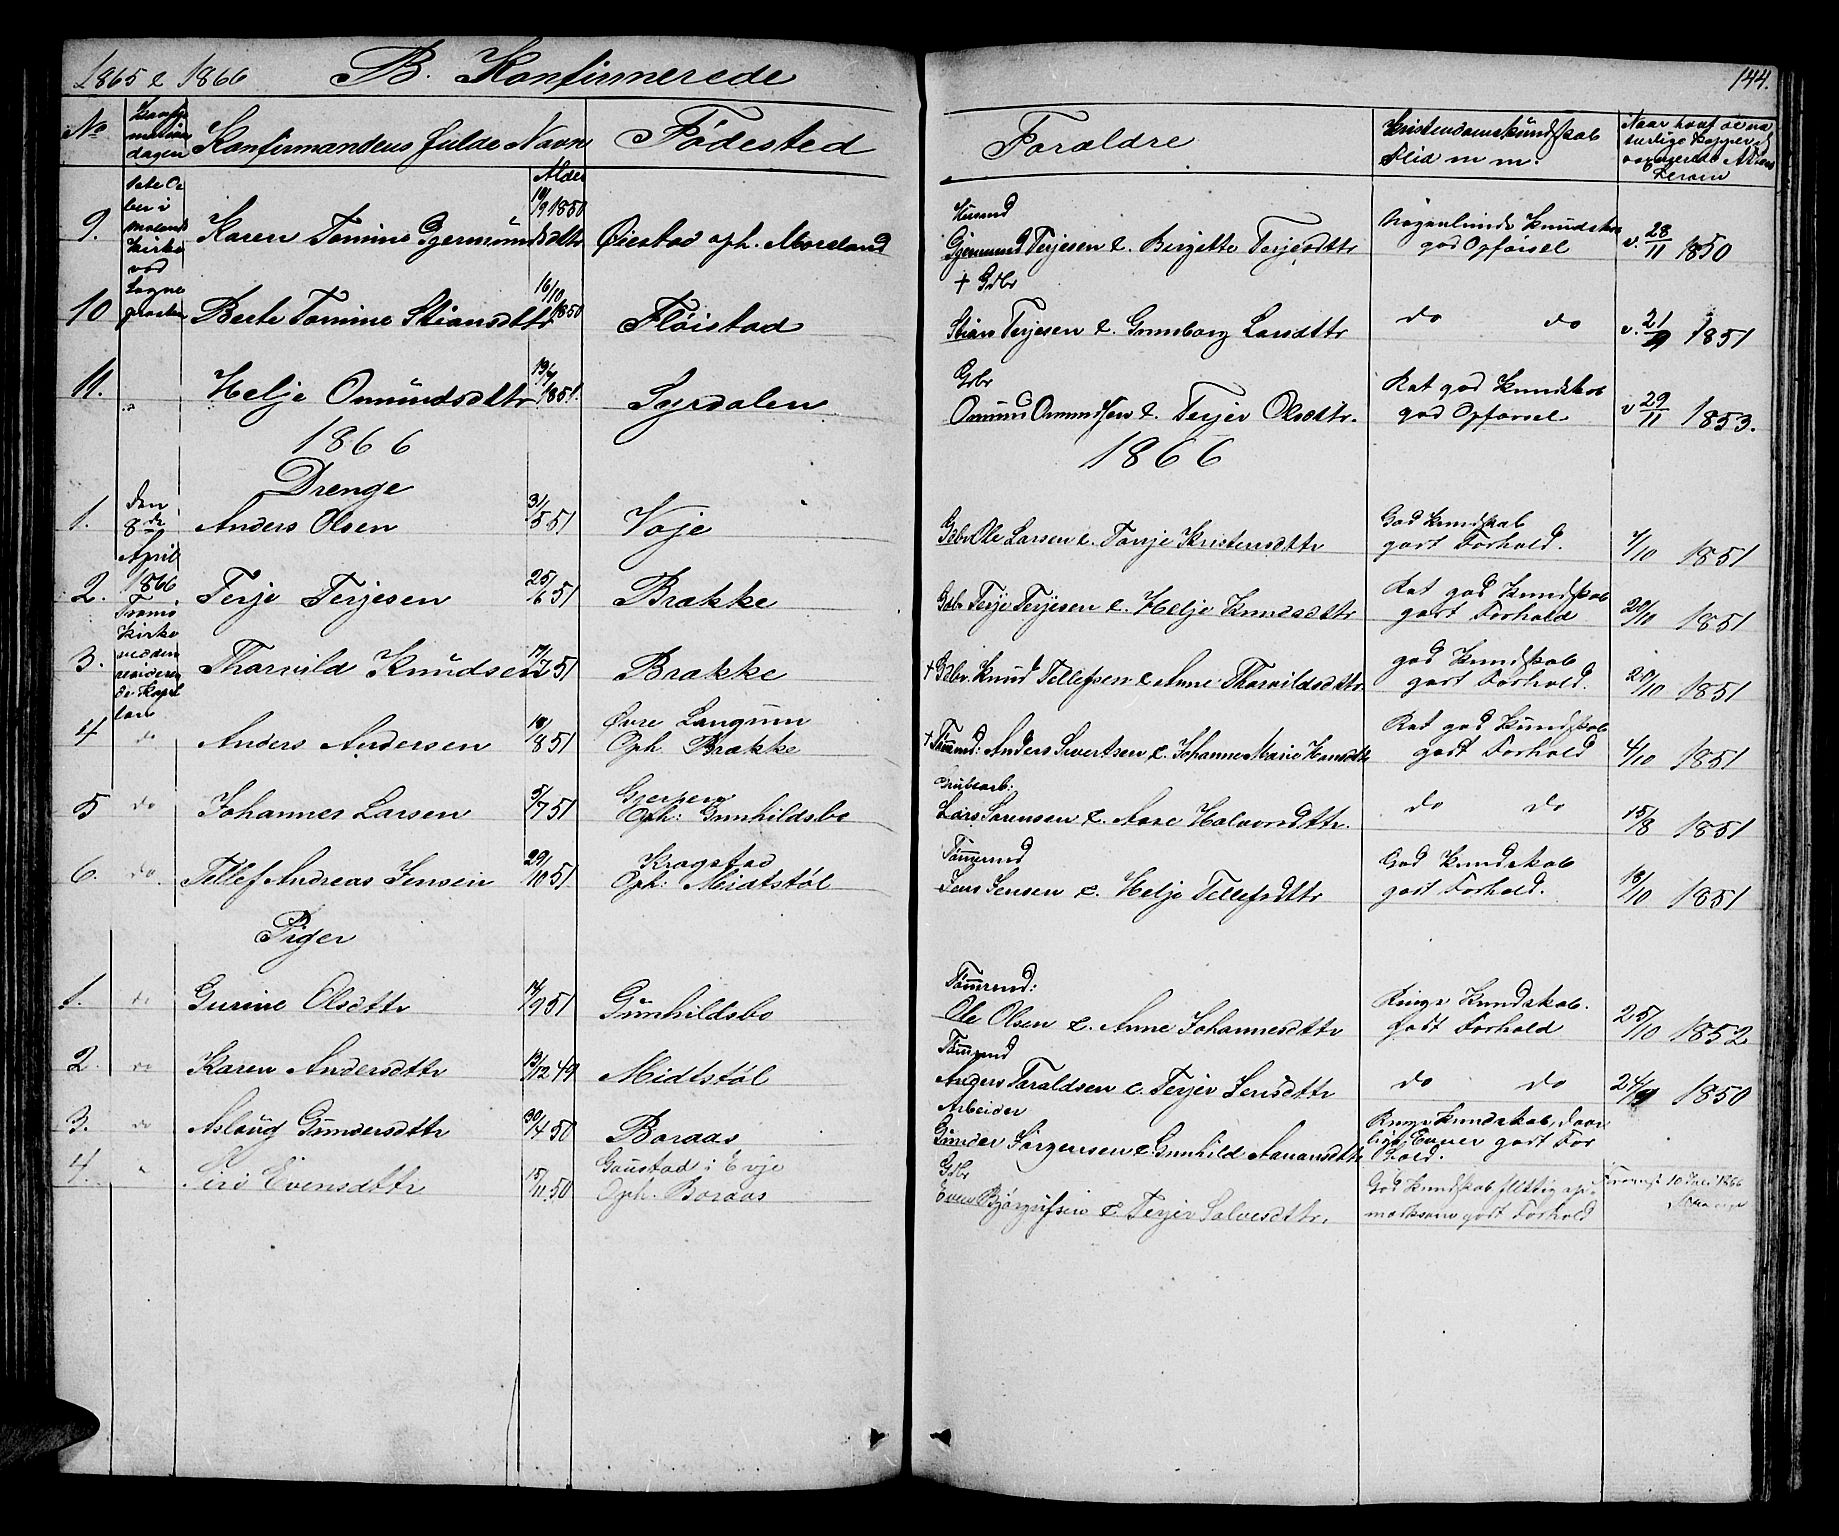 1865 & 1866 B. Konfirmerede 144.
No Konfirmandens fulde Navn Alder Fødested Forældre Kristendomskundskab Flid m m.
9. Karen Tomine Gjermunddsdttr 10/9 1850 Øiestad oph. Moreland
Husmd
Gjermund Terjesen & Birgitte Terjesdttr god Opførsel v. 28/11 1850
10 Berte Tomine Stiansdttr 16/10 1850 Fløistad
+ Gdbr
Stian Terjesen & Gunnborg Larsdttr do do v. 21/9 1851
11. " Helje Omundsdttr 19/7 1851. Syrdalen
Gdbr
Omund Omundsen & Terjer Olsdttr. Ret god Kundskab god Opførsel v 29/11 1853.
1866 1866
Drenge
1. den 8de April 1866 Anders Olsen 31/5 51 Voje Gdbr Ole Larsen & Tonje Kristensdttr God Kundskab godt Forhold. 7/10 1851
2. Tromø Kirke Terje Terjesen 25/6 51 Brække Gdbr Terje Terjesen & Helje Knudsdttr Ret god Kundskab godt Forhold 20/10 1851
3. Tharald Knudsen 17/7 51 Brække + Gdbr. Knud Tellefsen & Anne Tharaldsdttr. god Kundskab godt Forhold. 20/10 1851
4 do Anders Andersen 18/8 51 Øvre Langum Oph Brække + Tømmd: Anders Sivertsen & Johanne Marie Hansdttr Ret god Kundskab godt Forhold 4/10 1851
5 do Johannes Larsen 5/7 51 Gjerpen Oph: Gunhildsbo
Grubearb:
Lars Sørensen & Aase Halvorsdttr. do do 15/8 1851
6. do. Tellef Andreas Jensen 29/10 51 Kragstad Oph: Midtstøl
Tømmend
Jens Jensen & Helje Tellefsdttr God Kundskab godt Forhold. 18/10 1851
Piger
1. do Gurine Olsdttr 14/9 51 Gunhildsbo
Tømmend:
Ole Olsen & Anne Johannesdttr Ringe Kundskab. Godt Forhold 25/10 1852
2. do Karen Andersdttr 13/12 49 Midtstøl
Tømmend
Anders Taraldsen & Terjer Jensdttr do do 24/9 1850
3. do Aslaug Gundersdttr 30/4 50 Boraas
Arbeider
Gunder Jørgensen & Gunhild Aanonsdttr Ringe Kundskab, daarlige Evner godt Forhold.
4. " Siri Evensdttr 15/11 50 Gaustad i Evje Oph. Boraas
Gdbr
Even Bjørgufsen & Terjer Salvesdttr. God Kundskab flittig opmærksom godt Forhold